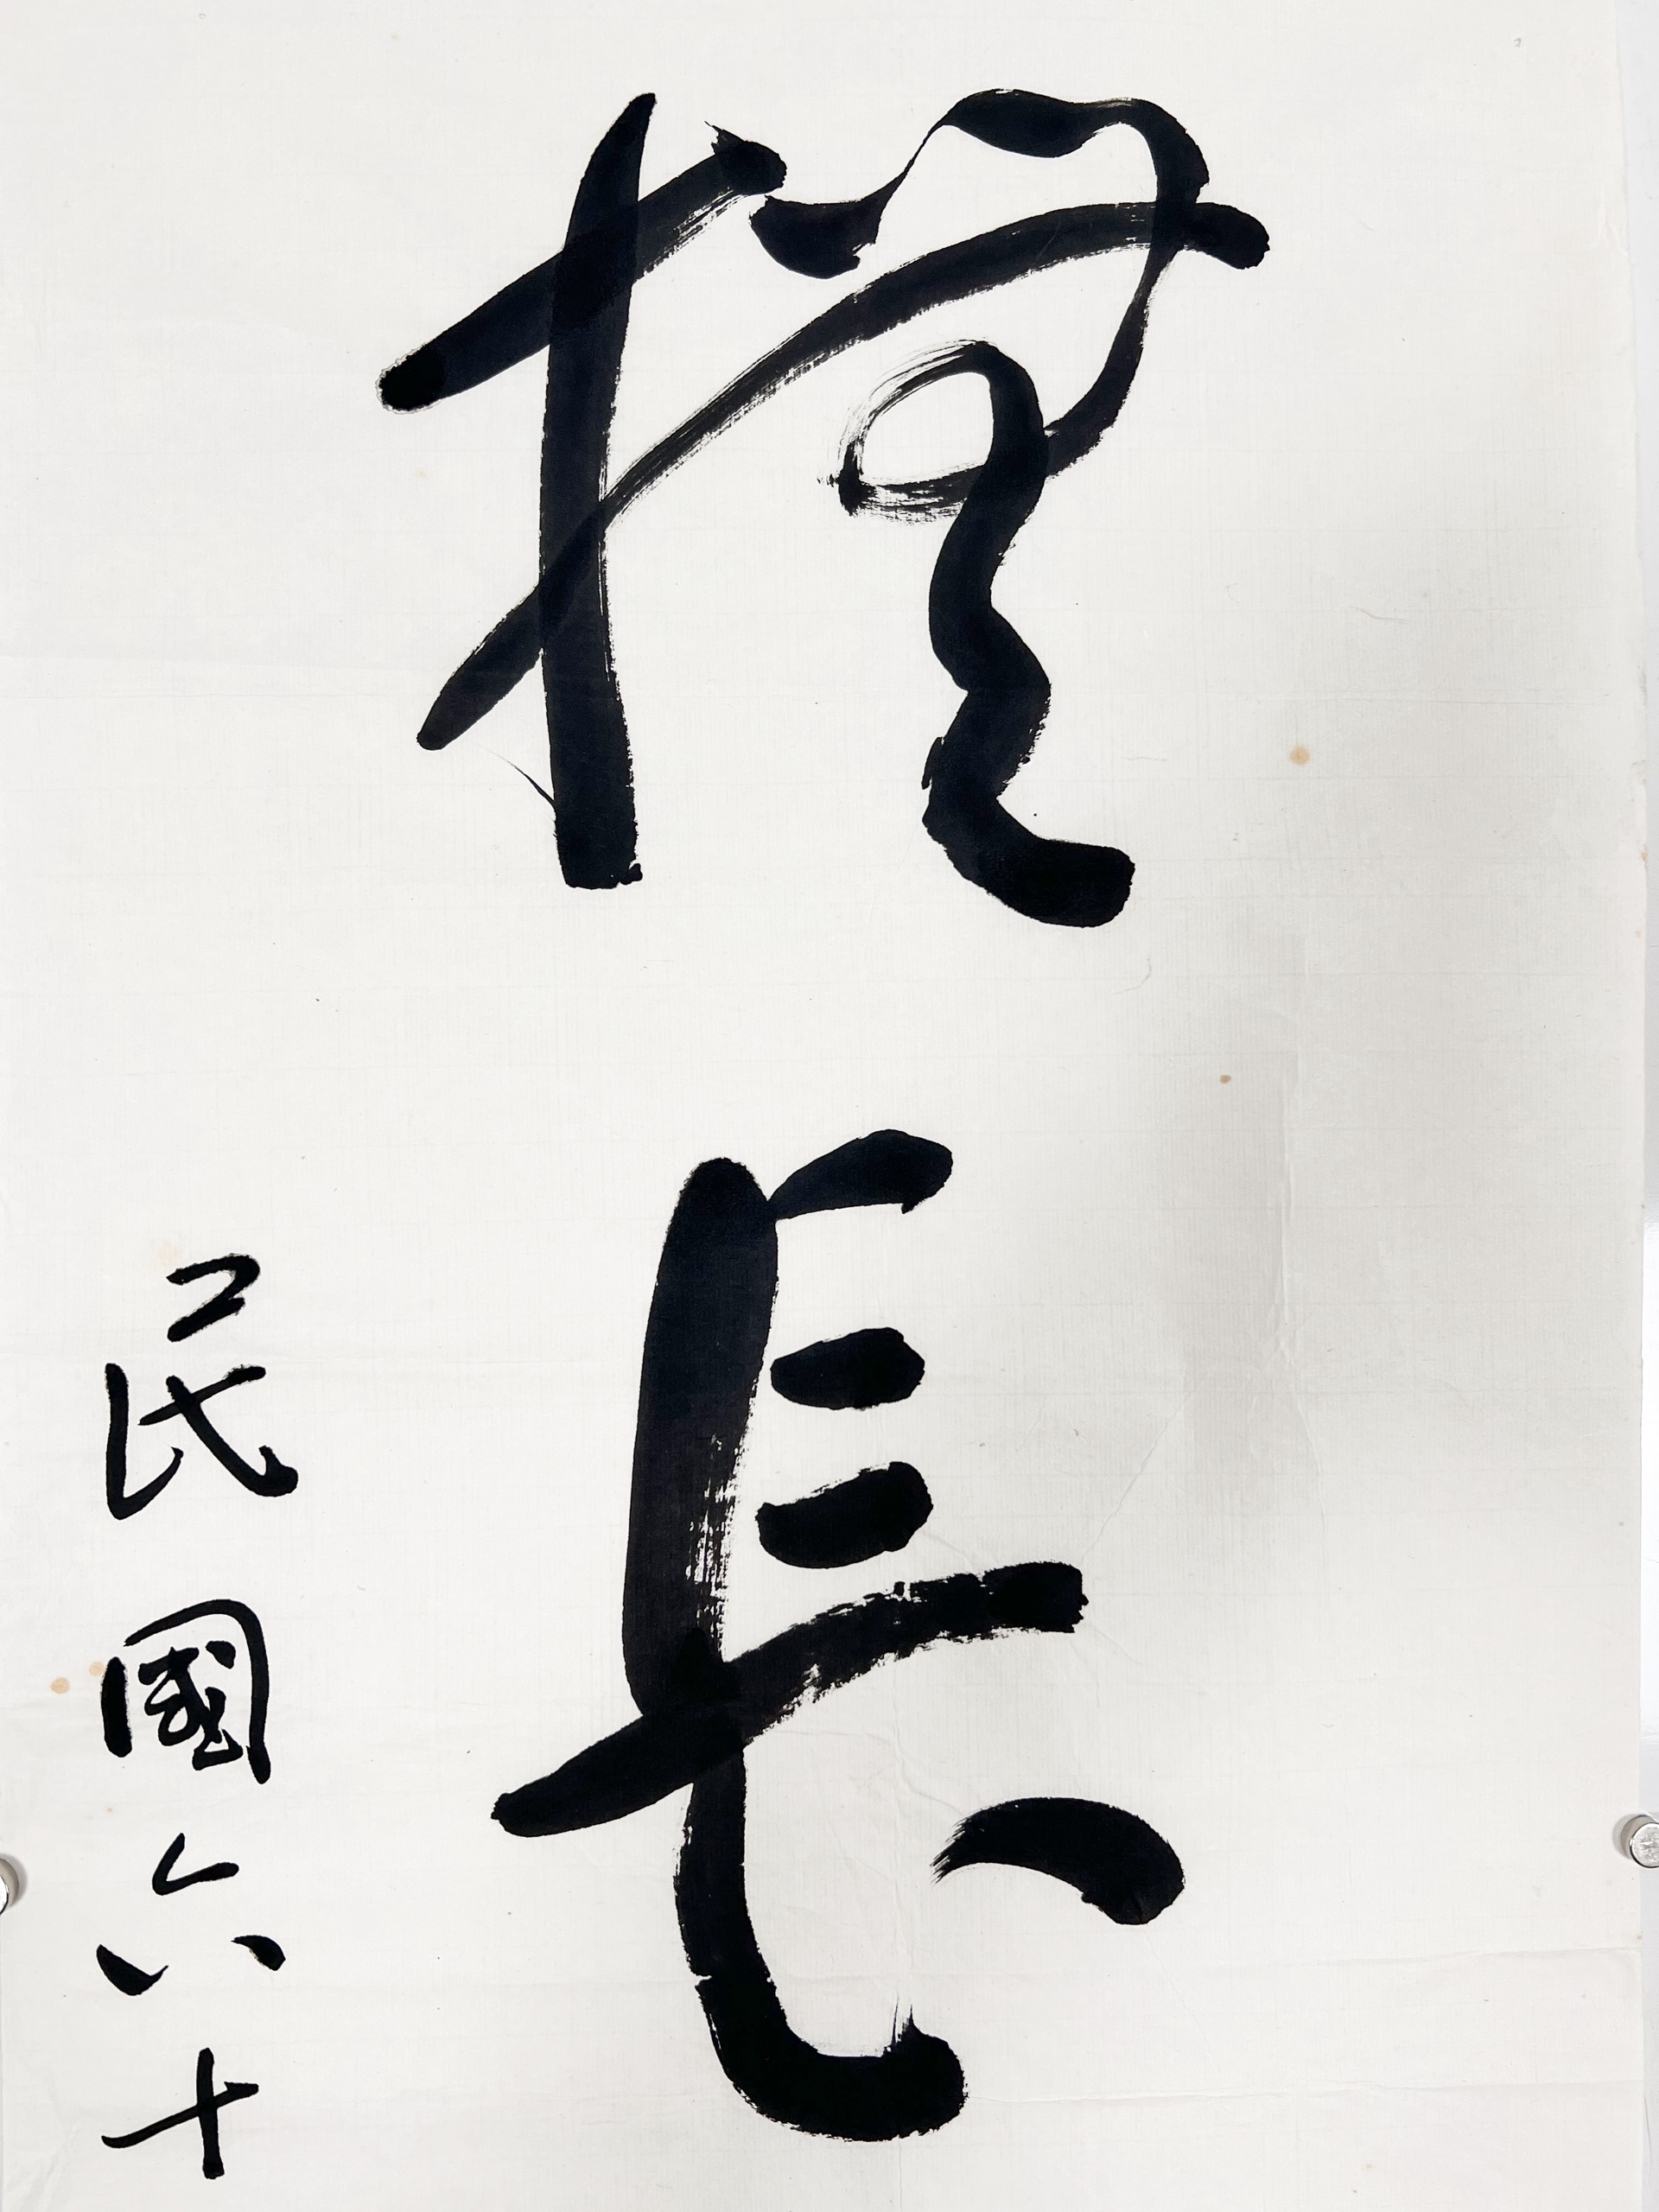 長
民國六十